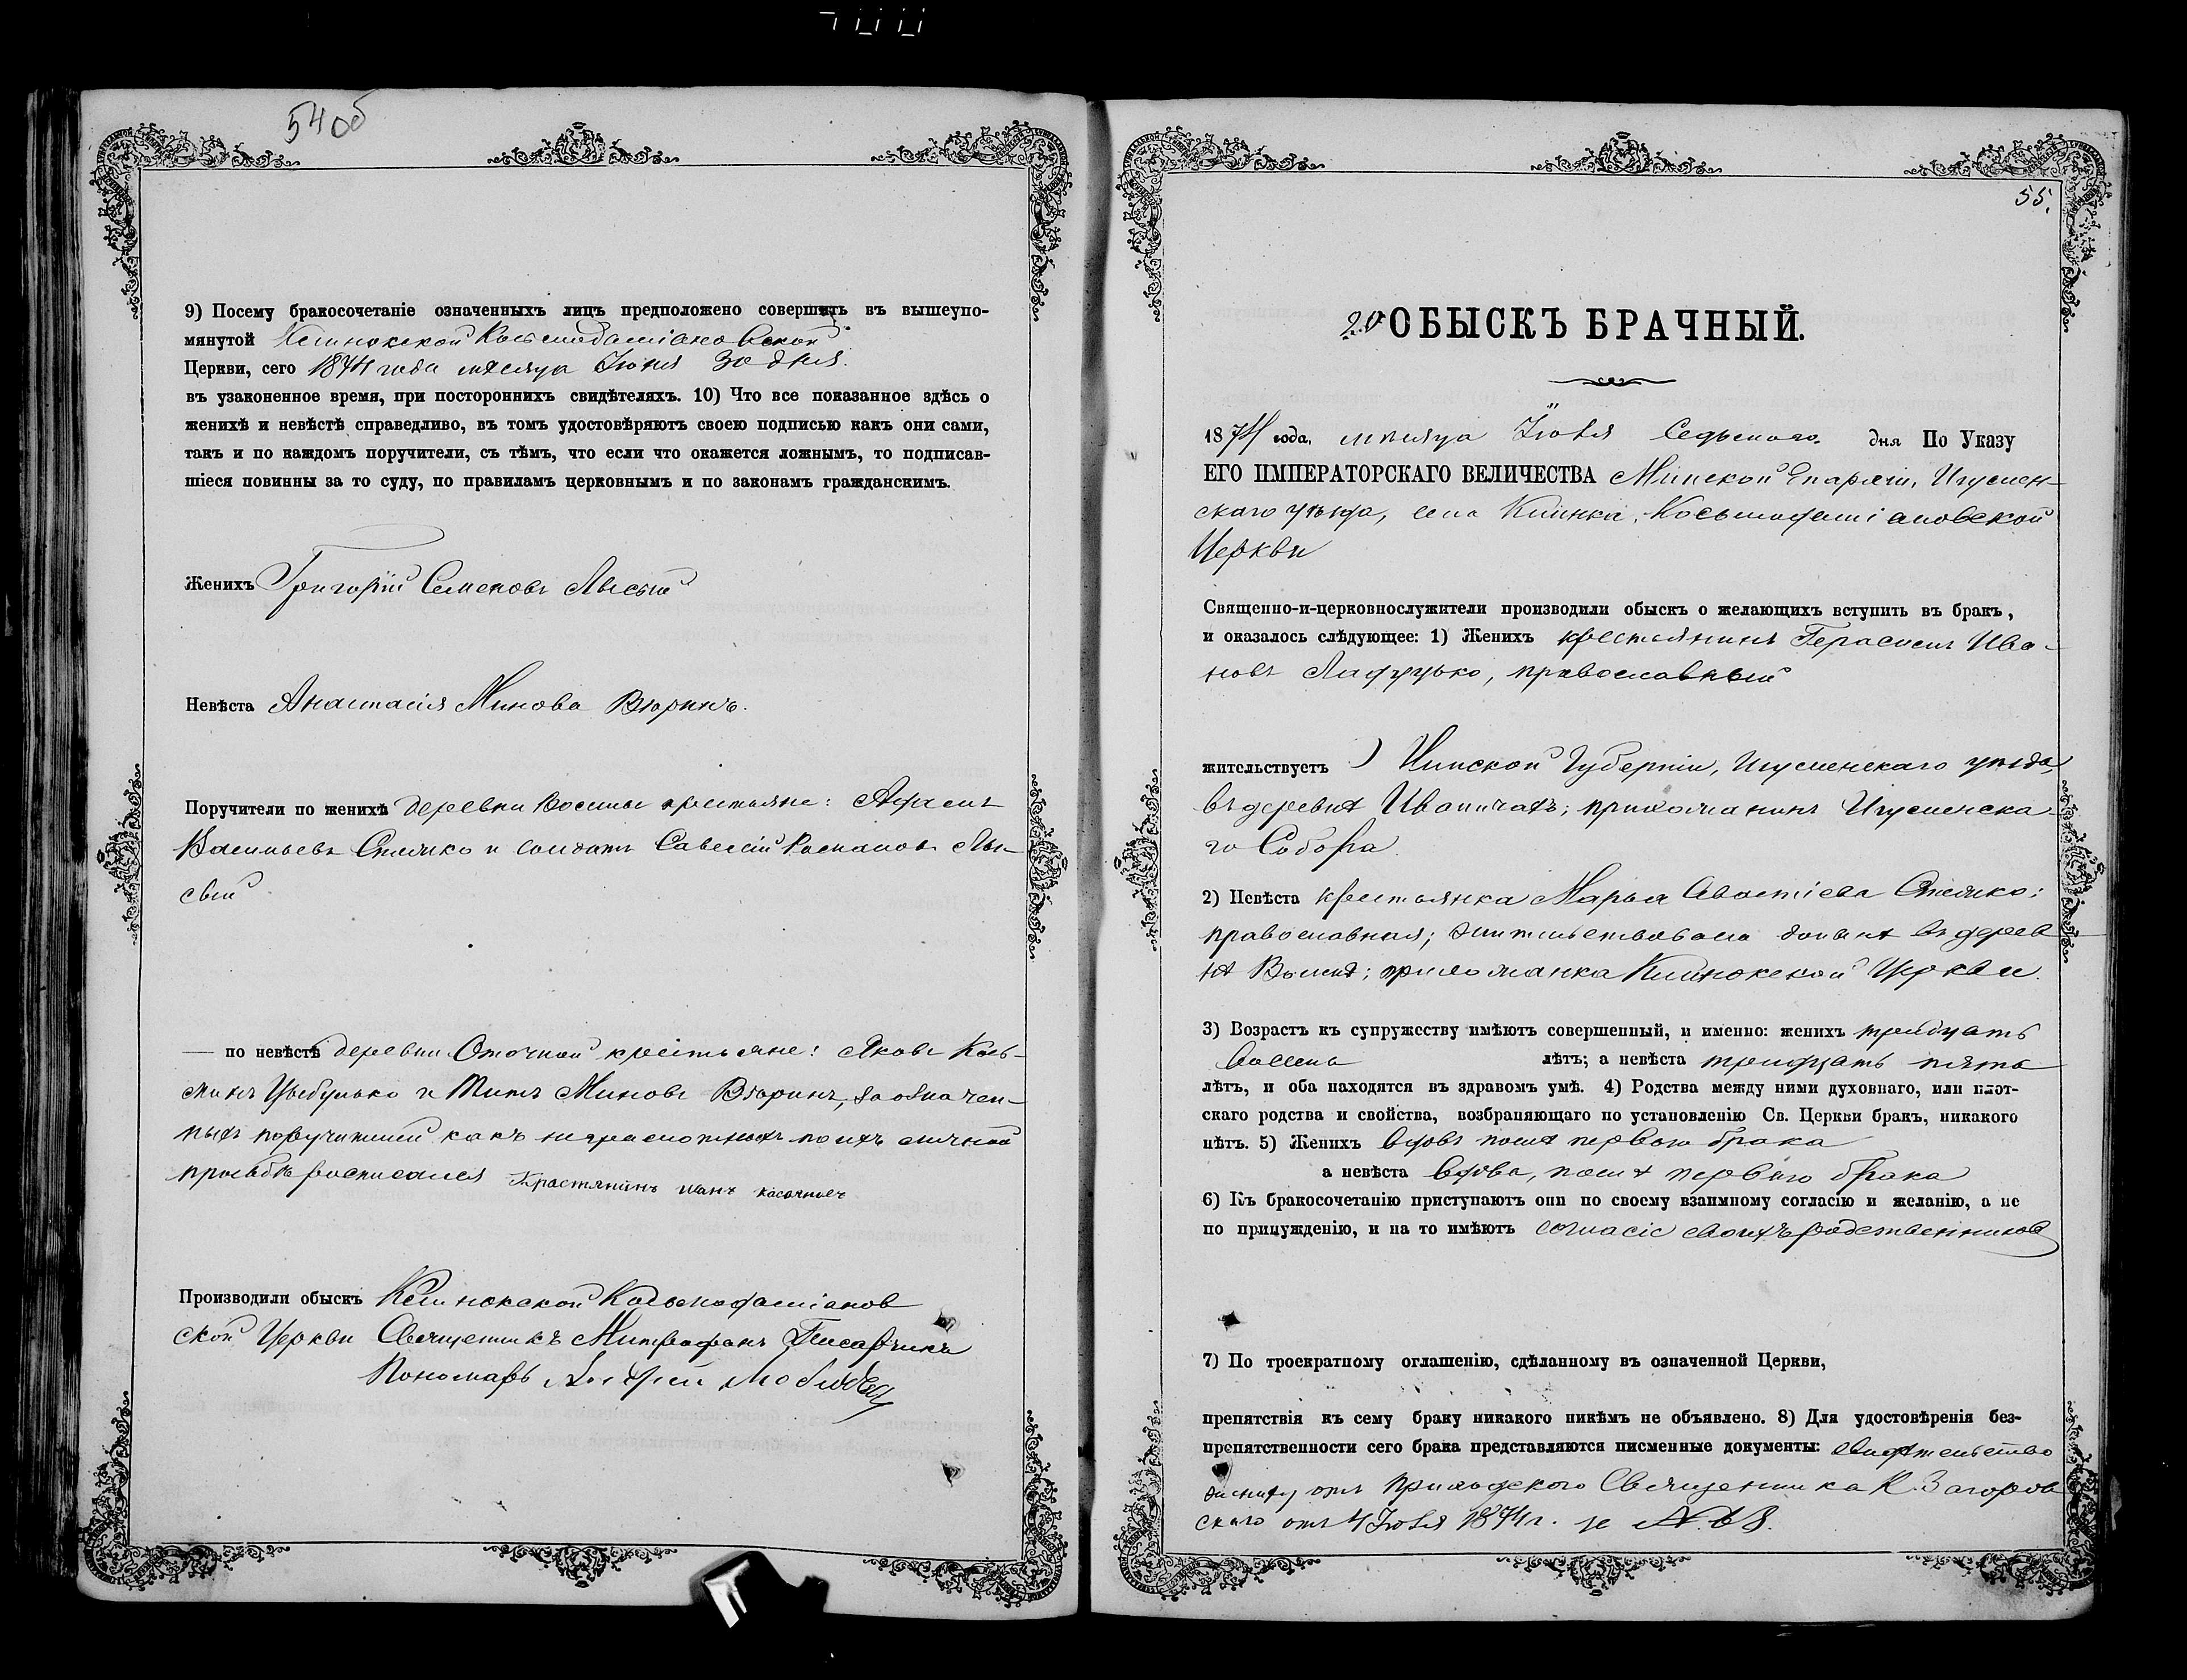 54об
9) Посему бракосочетаніе означенныхъ лицъ предположено совершить въ вышеупо-
мянутой Клинокской Косьмодаміановской
Церкви, сего 1874 года мѣсяца Іюня 30 дня.
въ узаконенное время, при постороннихъ свидѣтеляхъ. 10) Что все показанное здѣсь о
женихѣ и невѣстѣ справедливо, въ томъ удостовѣряютъ своею подписью какъ они сами,
такъ и по каждомъ поручители, съ тѣмъ, что если что окажется ложнымъ, то подписав-
шіеся повинны за то суду, по правиламъ церковнымъ и по законамъ гражданскимъ.
Женихъ Григорій Семеновъ Лысый
Невѣста Анастасія Минова Вюринъ.
Поручители по женихѣ деревни Волмы крестьяне:
Васильевъ Стляко и солдатъ Савелій Романовъ Лы-
сый
— по невѣстѣ деревни Оточной крестьяне: Яковъ Кось-
минъ Цыбулько и Титъ Миновъ Вюринъ, за означен-
ныхъ поручителей какъ неграмотныхъ по ихъ личной
просьбѣ росписался Крастянинъ иванъ
Производили обыскъ Клинокской Косьмодаміанов
ской Церкви Священникъ Митрофанъ Писарчикъ
Пономарь
55.
20 ОБЫСКЪ БРАЧНЫЙ.
1874 года, мѣсяца Іюля Седьмого дня По Указу
ЕГО ИМПЕРАТОРСКАГО ВЕЛИЧЕСТВА Минской Епархіи, Игумен-
скаго уѣзда, села Клинка, Косьмодаміановской
Церкви
Священно-и-церковнослужители производили обыскъ о желающихъ вступить въ бракъ,
и оказалось слѣдующее: 1) Женихъ крестьянинъ Герасимъ Ива-
новъ Ладутько, православный
жительствуетъ Минской Губерніи, Игуменскаго уѣзда,
въ деревнѣ Иваничахъ; прихожанинъ Игуменска-
го Собора.
2) Невѣста крестьянка Марья Стляко;
православная; жительствовала донынѣ въ дерев
нѣ Волмѣ; прихожанка Клинокской Церкви.
3) Возрастъ къ супружеству имѣютъ совершенный, и именно: женихъ тридцать
восемь лѣтъ; а невѣста тридцать пять
лѣтъ, и оба находятся въ здравомъ умѣ. 4) Родства между ними духовнаго, или плот-
скаго родства и свойства, возбраняющаго по установленію Св. Церкви бракъ, никакого
нѣтъ. 5) Женихъ вдовъ послѣ перваго брака
а невѣста вдова, послѣ перваго брака
6) Къ бракосочетанію приступаютъ они по своему взаимному согласію и желанію, а не
по принужденію, и на то имѣютъ согласіе своихъ родственниковъ
7) По троекратному оглашенію, сдѣланному въ означенной Церкви,
препятствія къ сему браку никакого никѣмъ не объявлено. 8) Для удостовѣренія без-
препятственности сего брака представляются писменные документы: свидѣтельство
жениху отъ приходского Священника К. Загоров
скаго отъ 4 Іюля 1874 г. за №